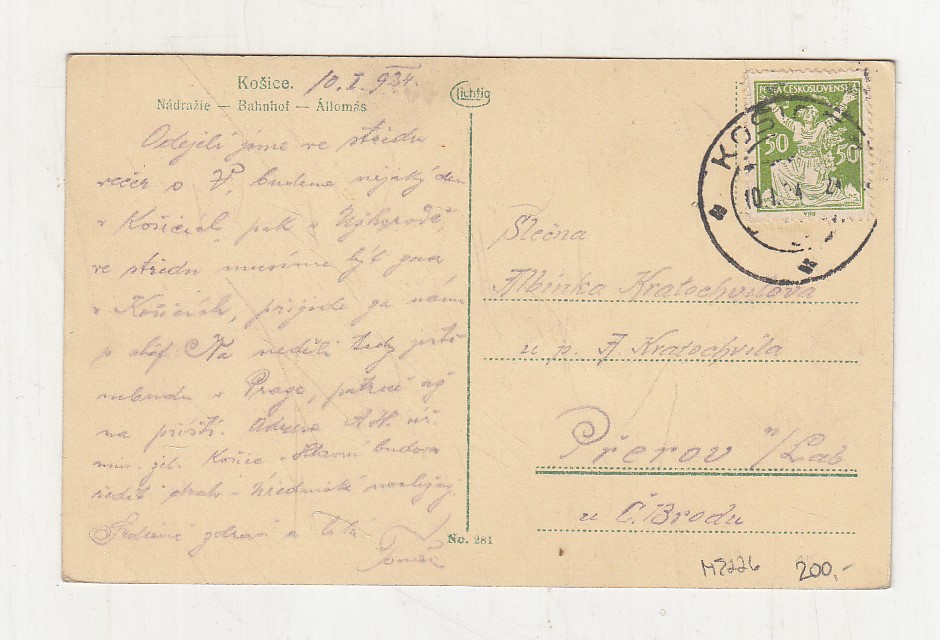 Košice. 10. I. 924.
Nádražie — Bahnhof — Állomás
Lichtig
Odejeli jsme ve středu
večer o budeme nejaký den
v Košicích, pak v Užhorodě,
ve středu musíme být zase
v Košicích, přijede za námi
p. šéf. Na neděli tedy ještě
nebudu v Praze, až
na příští. Adresa
min. žel. Košice Hlavní budova
ředit. drah –
Srdečně zdraví a líbá
Tomáš
POŠTA ČESKOSLOVENSKÁ
50 50
KOŠICE
10.I.24
Slečna
Albinka Kratochvílova
u p. A Kratochvíla
Přerov n/Lab
u Č. Brodu
No. 281
M7226 200,-